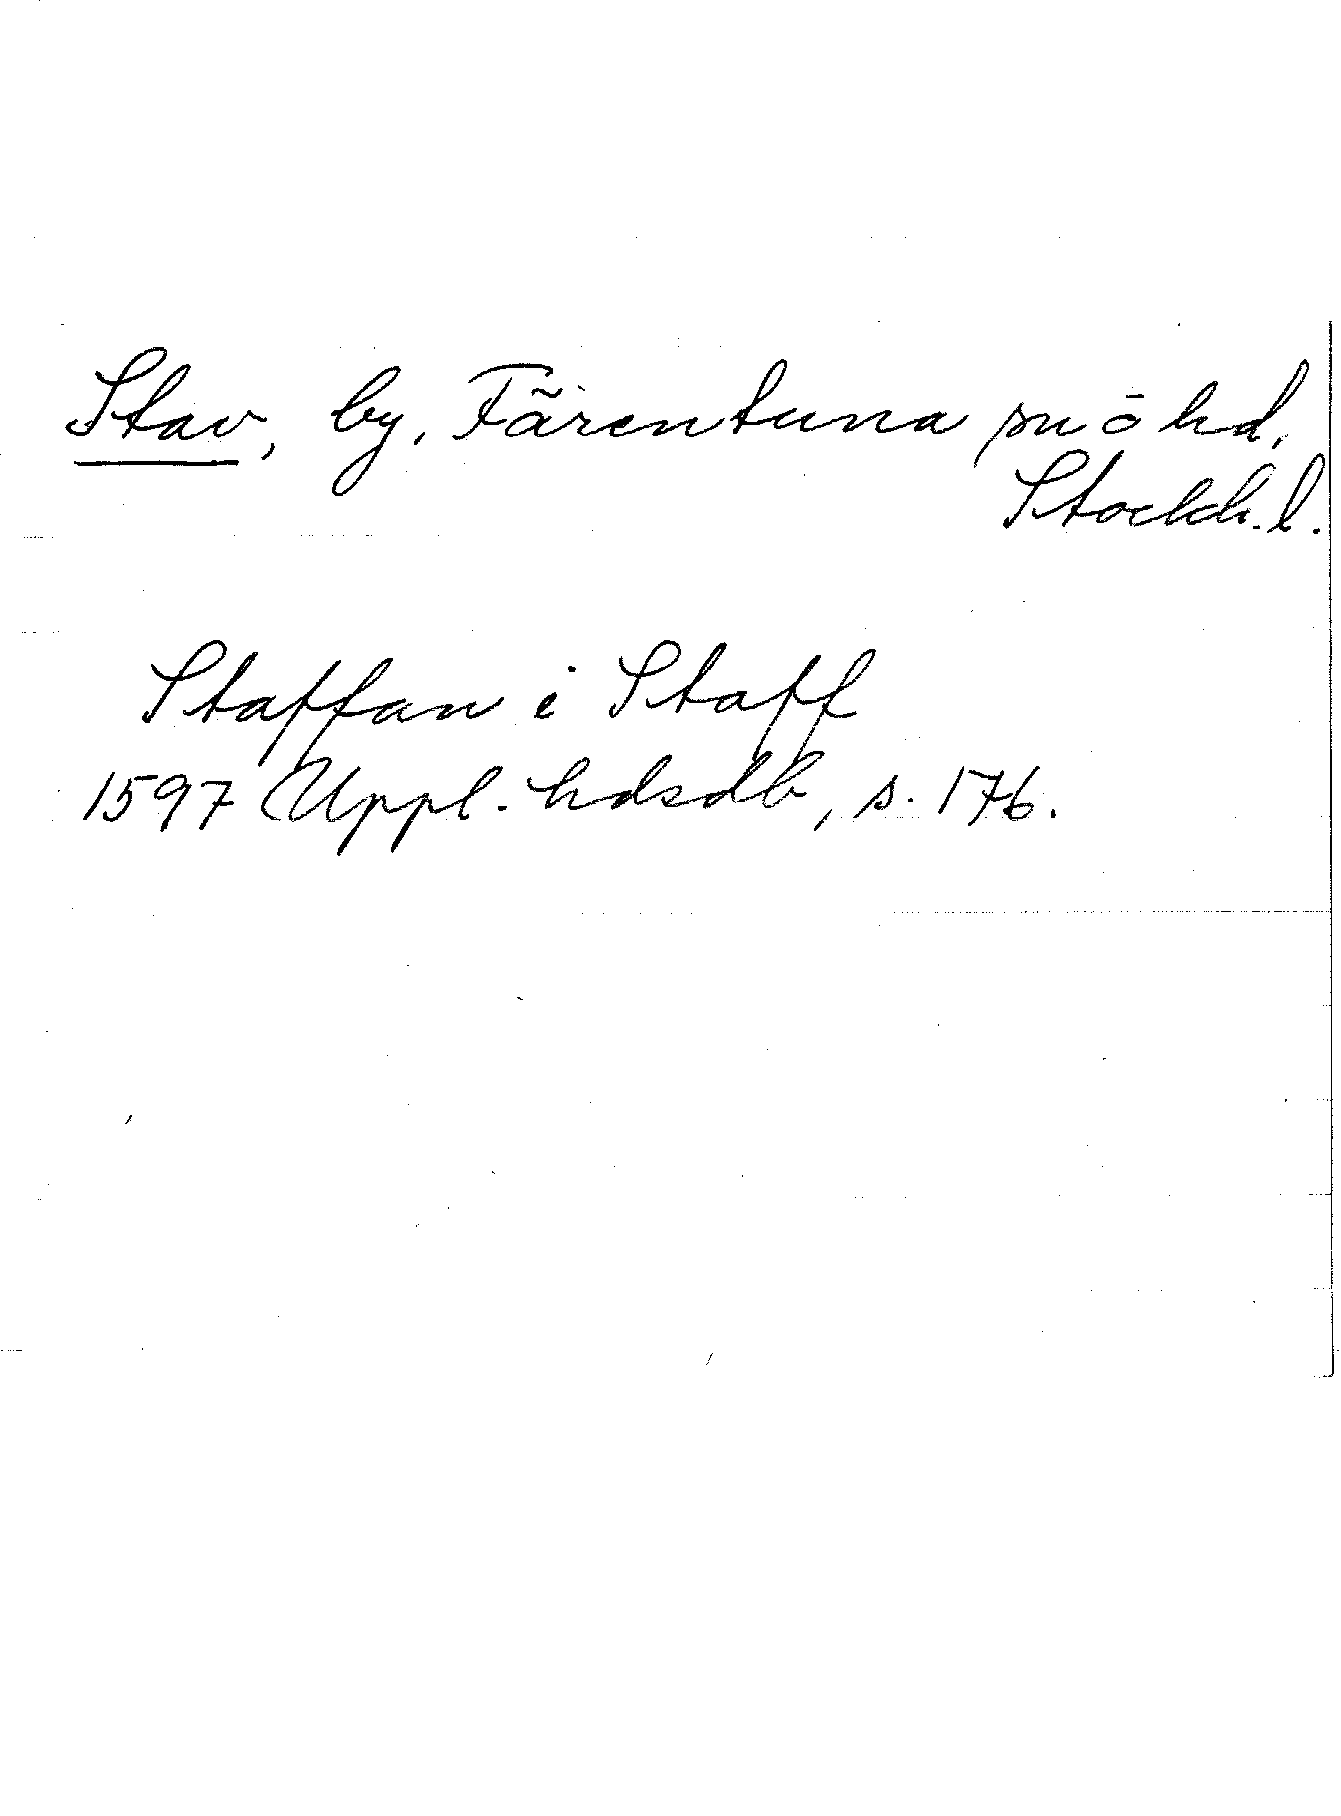 Stav, by, Färentuna sn o hd,
Stockh. l.
Staffan i Staff
1597 Uppl. hdsdb, s. 176.